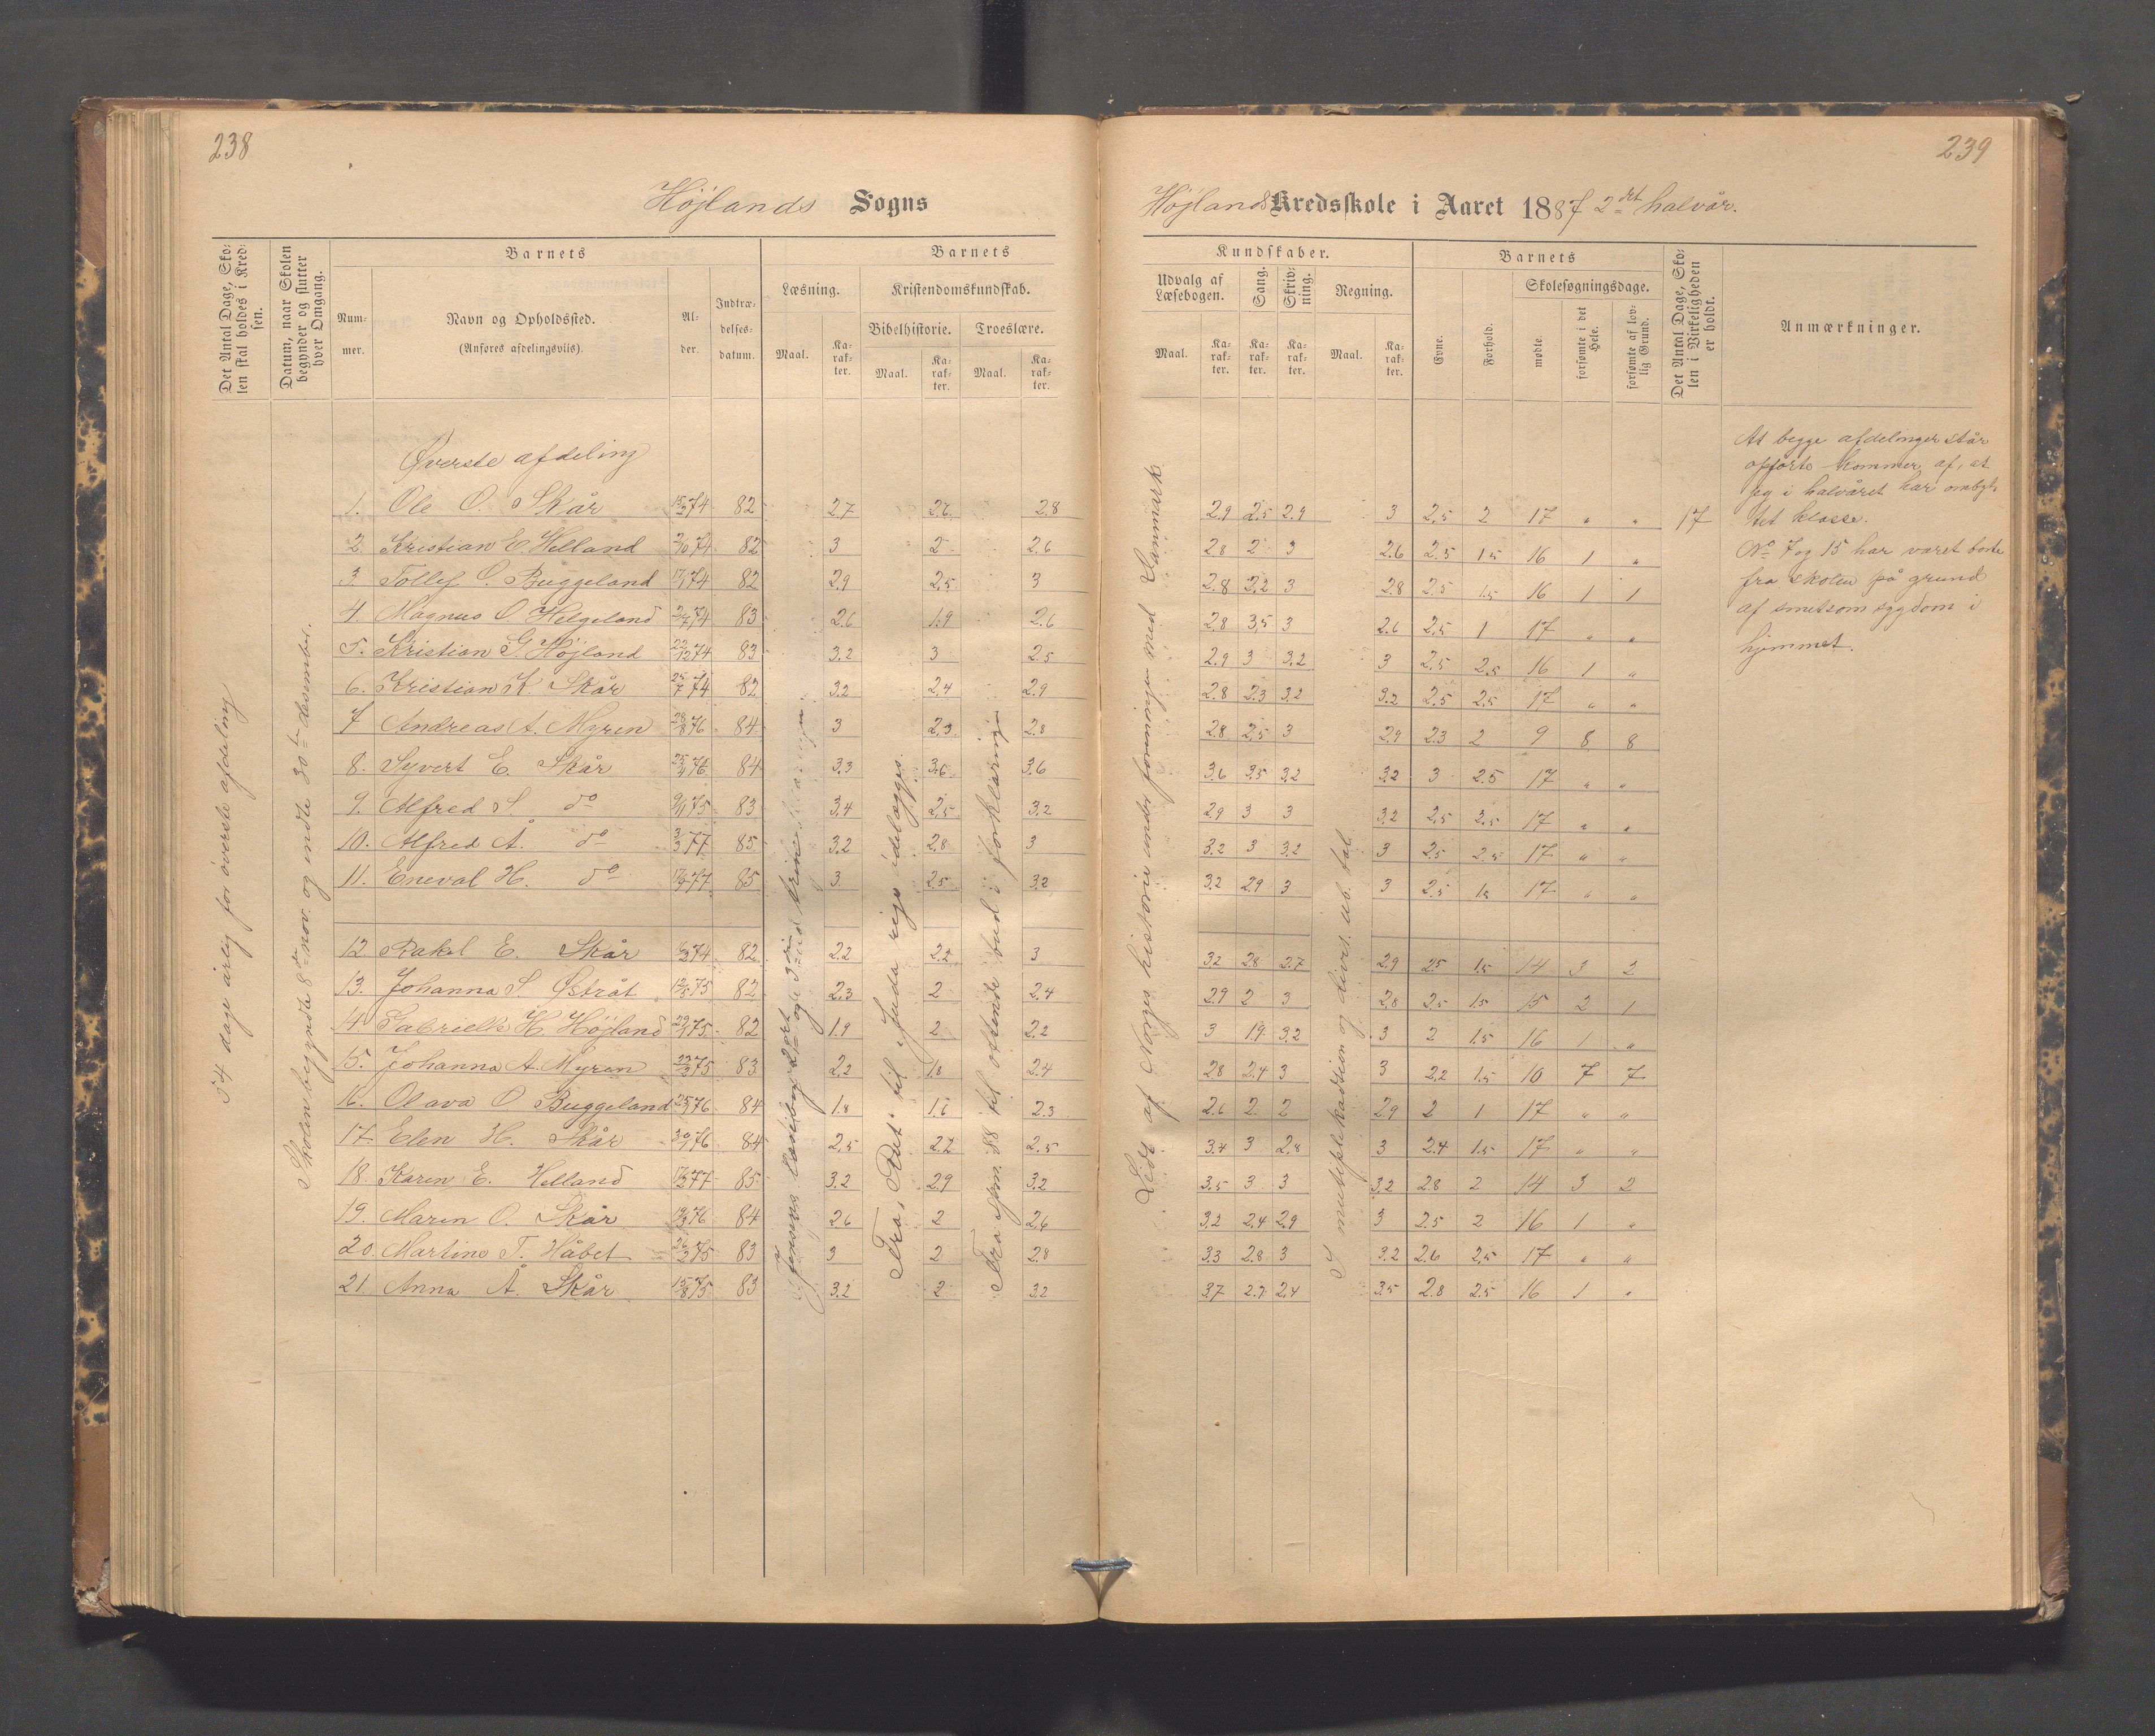 238
Højlands Sogns
Det Antal Dage, Sko-
len skal holdes i Kred-
sen.
Datum, naar Skolen
begynder og slutter
hver Omgang.
Barnets
Num-
mer.
Navn og Opholdssted.
(Anføres afdelingsviis).
Al-
der.
Indtræ-
delses-
datum.
Barnets
Læsning.
Kristendomskundskab.
Bibelhistorie.
Troeslære.
Maal.
Ka-
rak-
ter.
Maal.
Ka-
rak-
ter.
Maal.
Ka-
rak-
ter.
54 dage årlig for øverste afdeling
Skolen begyndte 8de nov. og endte 30te desember.
Øverste afdeling
1. Ole O. Skår 74 82 2.7 2.6 2.8
2. Kristian E. Helland 74 82 3 2 2.6
3. Tollef O. Buggeland 74 82 2.9 2.5 3
4. Magnus O. Helgeland 74 83 2.6 1.9 2.6
5. Kristian G. Højland 22/12 74 83 3.2 3 2.5
6. Kristian K. Skår 25/7 74 82 3.2 2.4 2.9
7 Andreas A. Myren 28/8 76 84 3 2.3 2.8
8. Syvert E. Skår 25/4 76 84 3.3 3.6 3.6
9. Alfred S. do 75 83 3.4 2.5 3.2
10. Alfred Å. do 77 85 3.2 2.8 3
11. Eneval H. do 77 85 3 2.5 3.2
12. Rakel E. Skår 74 82 2.2 2.2 3
13. Johanna S. Østråt 75 82 2.3 2 2.4
14 Gabrielle H. Højland 75 82 1.9 2 2.2
15. Johanna A. Myren 75 83 2.2 1.8 2.4
16. Olava O Buggeland 76 84 1.8 1.6 2.3
17. Elen H. Skår 76 84 2.5 2.2 2.5
18. Karen E. Helland 77 85 3.2 2.9 3.2
19. Maren O. Skår 76 84 2.6 2 2.6
20. Martine T. Håbet 75 83 3 2 2.8
21. Anna Å. Skår 15/8 75 83 3.2 2 3.2
Jensens læsebog 2det og 3die trin
Fra „Rut“ til Juda rige ødelægges.
Fra spm. 88 til ottende bud i forklaringen
239
Højlands Kredsskole i Aaret 1887 2det halvår.
Kundskaber.
Udvalg af
Læsebogen.
Sang.
Skriv-
ning.
Regning.
Maal.
Ka-
rak-
ter.
Ka-
rak-
ter.
Ka-
rak-
ter.
Maal.
Ka-
rak-
ter.
Barnets
Evne.
Forhold.
Skolesøgningsdage.
mødte.
forsømte i det
Hele.
forsømte af lov-
lig Grund.
Det Antal Dage, Sko-
len i Virkeligheden
er holdt.
Anmærkninger.
Lidt af Norges historie under foreningen med Danmark
I multiplikasjon og divis. ub. tal.
2.9 2.5 2.9 3 2.5 2 17 " " 17
2.8 2 3 2.6 2.5 1.5 16 1 "
2.8 2.2 3 2.8 2.5 1.5 16 1 1
2.8 3.5 3 2.6 2.5 1 17 " "
2.9 3 3.2 3 2.5 2.5 16 1 "
2.8 2.3 3.2 3.2 2.5 2.5 17 " "
2.8 2.5 3 2.9 2.3 2 9 8 8
3.6 3.5 3.2 3.2 3 2.5 17 " "
2.9 3 3 3.2 2.5 2.5 17 " "
3.2 3 3.2 3 2.5 2.5 17 " "
3.2 2.9 3 3 2.5 1.5 17 " "
3.2 2.8 2.7 2.9 2.5 1.5 14 3 2
2.9 2 3 2.8 2.5 1.5 15 2 1
3 1.9 3.2 3 2 1.5 16 1 "
2.8 2.4 3 3 2.2 1.5 10 7 7
2.6 2 2 2.9 2 1 17 " "
3.4 3 2.8 3 2.4 1.5 17 " "
3.5 3 3 3.2 2.8 2 14 3 2
3.2 2.4 2.9 3 2.5 2 16 1 "
3.3 2.8 3 3.2 2.6 2.5 17 " "
3.7 2.7 2.4 3.5 2.8 2.5 16 1 "
At begge afdelinger står
opførte kommer af, at
jeg i halvåret har ombyt-
tet klasse.
No 7 og 15 har været borte
fra skolen på grund
af smitsom sygdom i
hjemmet.